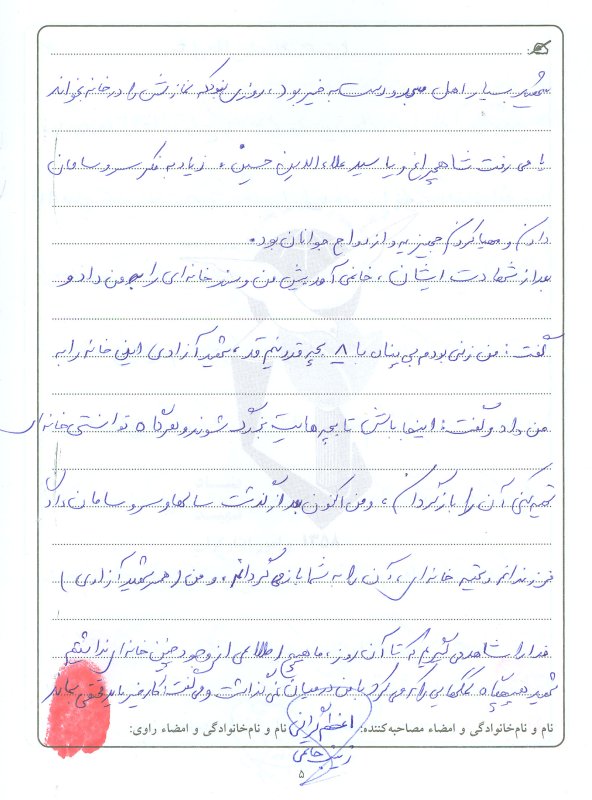 شهید بسیار اهل مسجد و دست به خیر بود، روزی نبود که نمازش را در خانه بخواند
یا می رفت شاهچراغ و یا سید علاءالدین حسین، زیاد به فکر سر و سامان
دادن و مهیا کردن جهیزیه و ازدواج جوانان بود.
بعد از شهادت ایشان، خانمی آمد پیش من و سند خانه‌ای را به من داد و
گفت: من زنی بودم بی پناه با ۸ بچه قد و نیم قد، شهید آزادی این خانه را به
من داد و گفت: اینجا باش تا بچه هایت بزرگ شوند و هرگاه توانستی خانه ای
تهیه کنی آن را بازگردان، و من اکنون بعد از گذشت سالها و سر و سامان دادن
فرزندانم و تهیه خانه ای، آن را به شما باز می گردانم، و من (همسر شهید آزادی)
خدا را شاهد می گیرم که تا آن روز، ما هیچ اطلاعی از وجود چنین خانه ای نداشتیم
شهید هیچگاه کمکهایی را که می کرد با من در میان نمی گذاشت و می گفت کار خیر باید مخفی بماند
نام و نام‌خانوادگی و امضاء مصاحبه‌کننده: اعظم نام و نام‌خانوادگی و امضاء راوی:
زینب خاتمی
۵